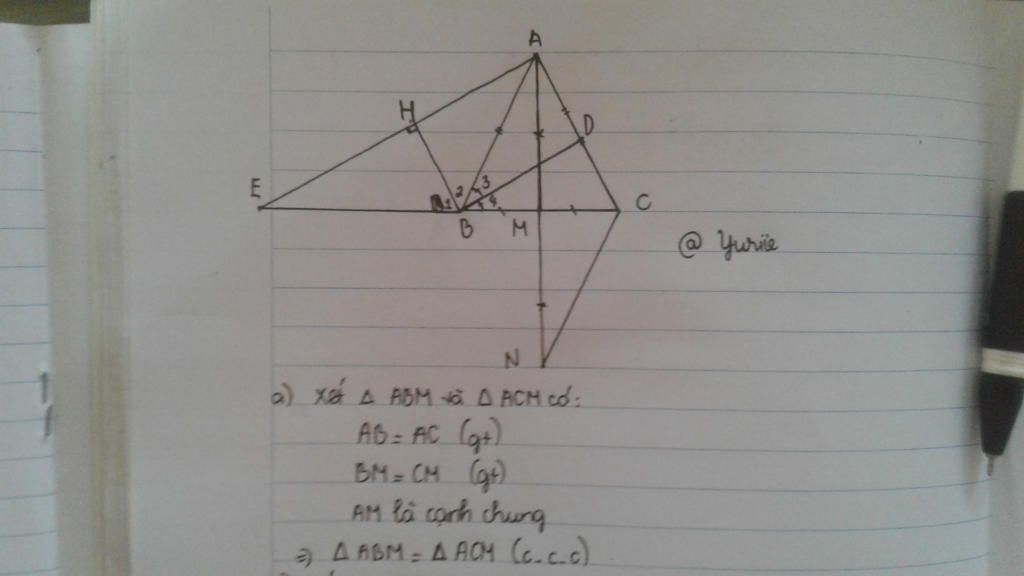 A
H
D
E
2
3
1
4
B
M
C
@ Yuriie
N
a) Xét Δ ABM và Δ ACM có:
AB = AC (gt)
BM = CM (gt)
AM là cạnh chung
=) Δ ABM = Δ ACM (c-c-c)